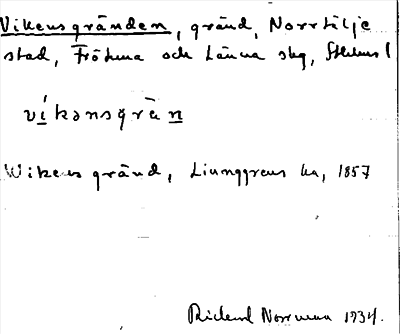 Vikensgränden, gränd, Norrtälje
stad, Frötuna och Länna skg, Sthlms l
vikənsgrän
Wikens gränd, Ljunggrens ka, 1857
Rickard Norrman 1934.